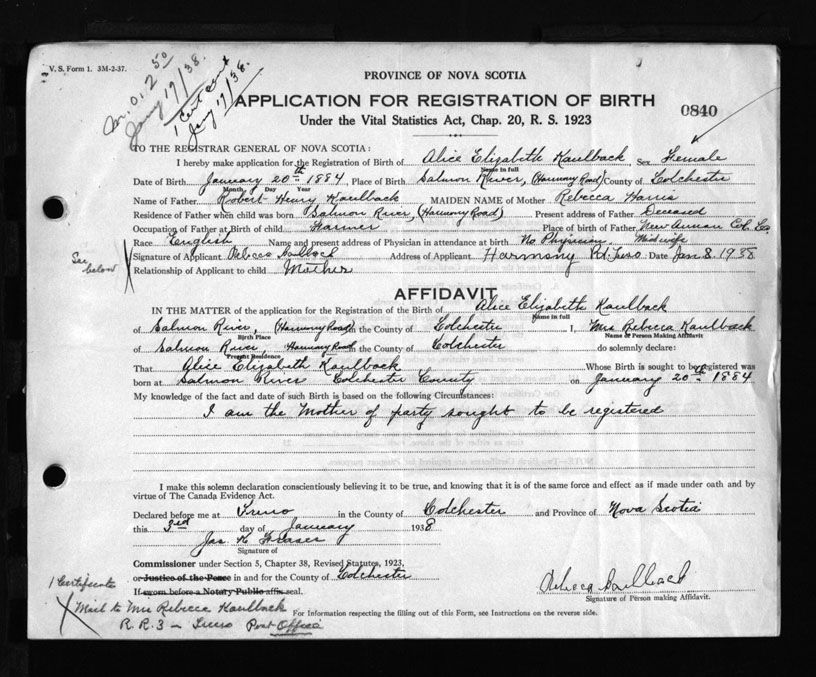 V. S. Form 1. 3M-2-37.
M.O. 2.50
Jany 19/38.
1 Cert sent
Jany 19/38.
PROVINCE OF NOVA SCOTIA
APPLICATION FOR REGISTRATION OF BIRTH
0840
Under the Vital Statistics Act, Chap. 20, R. S. 1923
TO THE REGISTRAR GENERAL OF NOVA SCOTIA:
I hereby make application for the Registration of Birth of Alice Elizabeth Kaulback, Sex Female
Name in full
Date of Birth January 20th 1884, Place of Birth Salmon River, (Harmony Road) County of Colchester
Month Day Year
Name of Father Robert Henry Kaulback MAIDEN NAME of Mother Rebecca Harris
Residence of Father when child was born Salmon River, (Harmony Road) Present address of Father Deceased
Occupation of Father at Birth of child Farmer Place of birth of Father New Annan Col. Co
Race English Name and present address of Physician in attendance at birth No Physician. Midwife
Signature of Applicant Rebecca Kaulback Address of Applicant Harmony Rd. Truro Date Jan 8. 1938
See below
Relationship of Applicant to child Mother
AFFIDAVIT
IN THE MATTER of the application for the Registration of the Birth of Alice Elizabeth Kaulback
Name in full
of Salmon River, (Harmony Road) in the County of Colchester I, Mrs Rebecca Kaulback
Birth Place Name of Person Making Affidavit
of Salmon River, Harmony Road in the County of Colchester do solemnly declare:
Present Residence
That Alice Elizabeth Kaulback Whose Birth is sought to be registered was
born at Salmon River Colchester County on January 20th 1884
My knowledge of the fact and date of such Birth is based on the following Circumstances:
I am the Mother of party sought to be registered
I make this solemn declaration conscientiously believing it to be true, and knowing that it is of the same force and effect as if made under oath and by
virtue of The Canada Evidence Act.
Declared before me at Truro in the County of Colchester and Province of Nova Scotia
this 3rd day of January 1938
Jas. K Fraser
Signature of
Commissioner under Section 5, Chapter 38, Revised Statutes, 1923,
or Justice of the Peace in and for the County of Colchester
If sworn before a Notary Public affix seal.
Rebecca Kaulback
Signature of Person making Affidavit.
1 Certificate
Mail to Mrs Rebecca Kaulback
For Information respecting the filling out of this Form, see Instructions on the reverse side.
R. R. 3 - Truro Post Office